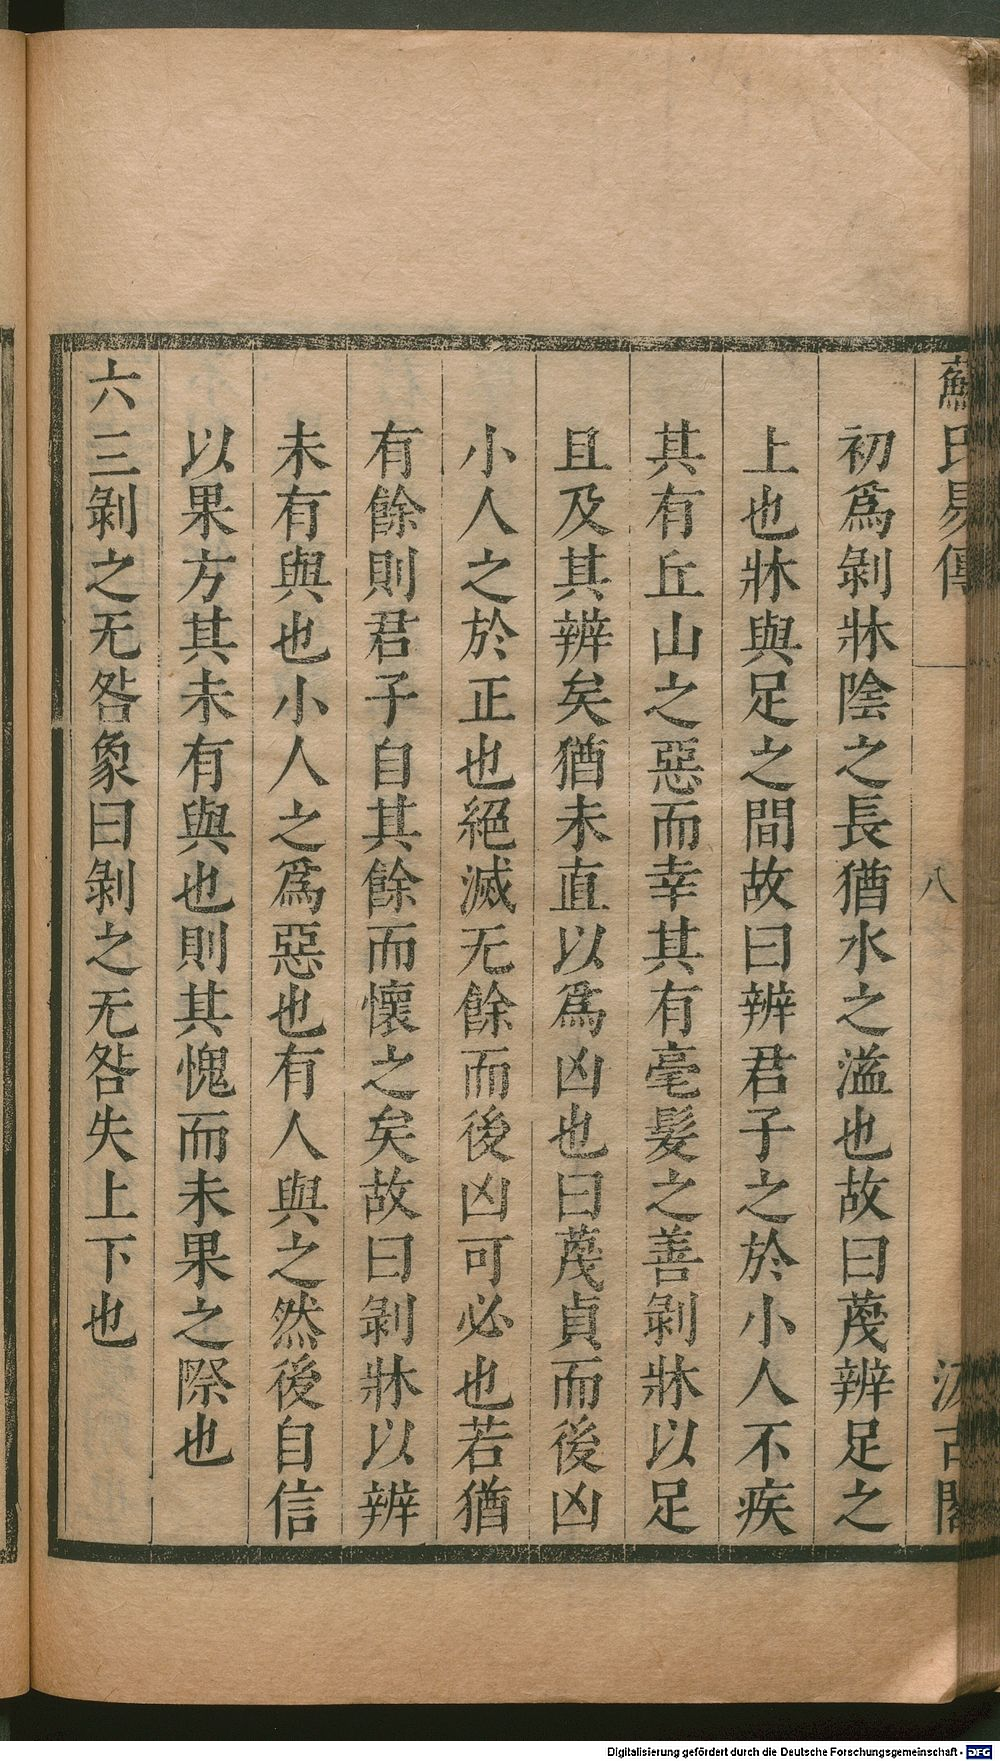 蘇氏易傳
八
汲古閣
初爲剝牀陰之長猶水之溢也故曰蔑辨足之
上也牀與足之間故曰辨君子之於小人不疾
其有丘山之惡而幸其有毫髮之善剝牀以足
且及其辨矣猶未直以爲凶也曰蔑貞而後凶
小人之於正也絕滅无餘而後凶可必也若猶
有餘則君子自其餘而懷之矣故曰剝牀以辨
未有與也小人之爲惡也有人與之然後自信
以果方其未有與也則其愧而未果之際也
六三剝之无咎象曰剝之无咎失上下也
Digitalisierung gefördert durch die Deutsche Forschungsgemeinschaft - DFG